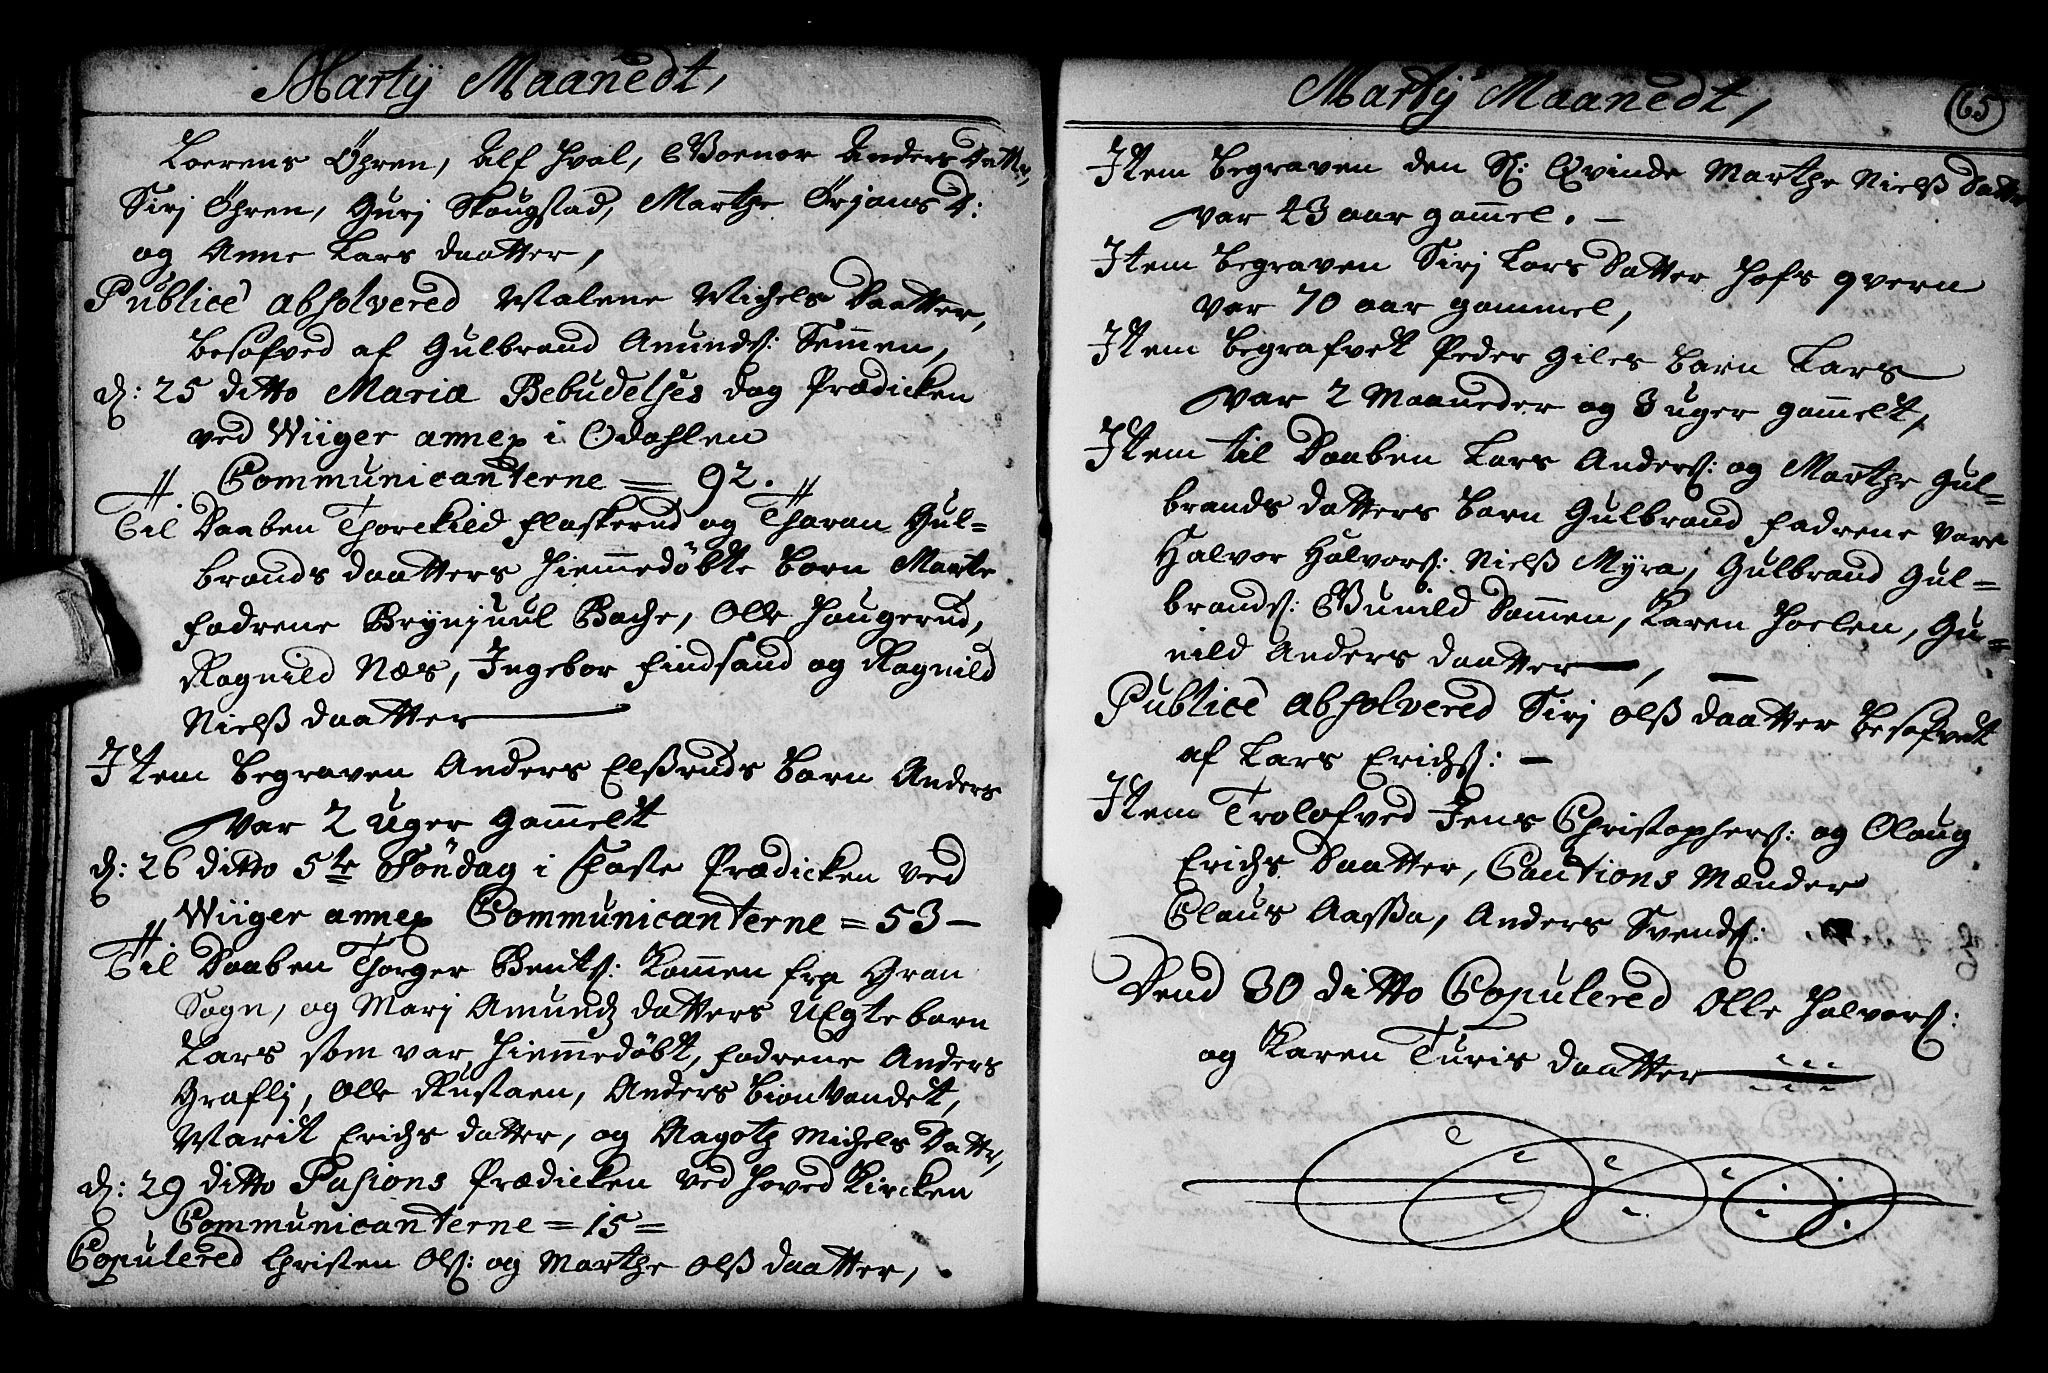 Martÿ Maanedt,
Loerens Öhren, Alf Hval, Anders Datter,
Sirj Öhren, Gurj Skougstad, Marthe Örjans D:
og Anne Lars daatter,
Publicè absolvered Malene Michels Daatter,
besofved af Gulbrand Amunds: Semmen,
d: 25 ditto Mariæ Bebudelses dag Prædicken
ved Wiiger annex i Odahlen
Communicanterne = 92.
Til Daaben Thorekild Flaskerud og Tharan Gul=
brands daatters Hiemmedöbte barn Marte
Fadrene Brÿnjuul Bache, Olle Haugerud,
Ragnild Næs, Ingebor Findsand og Ragnild
Nielß daatter
Item begraven Anders Elßruds barn Anders
var 2 Uger Gammeldt
d: 26 ditto 5te Söndag i Faste Prædicken ved
Wiiger annex Communicanterne = 53 –
Til Daaben Thorger Bents: kommen fra Gran
Sogn, og Marj Amundz datters Uægte barn
Lars som var Hiemmedöbt, fadrene Anders
Graflj, Olle Rustaen, Anders Biönvandet,
Marit Erichs datter, og Ragotz Michels Datter,
d: 29 ditto Pasions Prædicken ved Hoved Kircken
Communicanterne = 15 =
Copulered Christen Ols: og Marthe Olß daatter,
Martÿ Maanedt,
65
Item begraven den Sl: Qvinde Marthe Nielß Datter
var 43 aar gammel. –
Item begraven Sirj Lars Datter Hofs qvern
var 70 aar gammel,
Item begrafvet Peder Giles barn Lars
var 2 Maaneder og 3 uger gammelt,
Item til Daaben Lars Anders: og Marthe Gul=
brands datters barn Gulbrand Fadrene vare
Halvor Halvors: Nielß Mÿra, Gulbrand Gul=
brands: Gunild Dammen, Karen Hoelen, Gu=
nild Anders daatter –, –
Publicè absolvered Sirj Olß daatter besofvedt
af Lars Erichs: –
Item Trolofved Jens Christophers: og Olaug
Erichs Daatter, Cautions Mænder
Claus Aaßa, Anders Svends:
Dend 30 ditto Copulered Olle Halvors:
og Karen Turis daatter